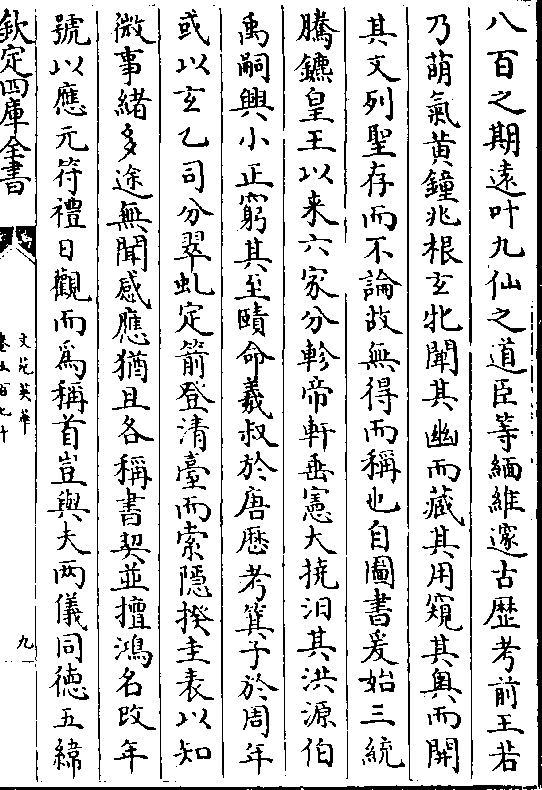 八百之期遠叶九仙之道臣等緬維邃古歴考前王若
乃萌氣黄鐘兆根玄牝闡其幽而藏其用窺其奥而開
其文列聖存而不論故無得而稱也自圖書爰始三統
騰鑣皇王以来六家分軫帝軒垂憲大撓汨其洪源伯
禹嗣興小正窮其至賾命羲叔於唐歴考箕子於周年
或以玄乙司分翠虬定箭登清臺而索隠揆圭表以知
微事緒多途無聞感應猶且各稱書契並擅鴻名改年
號以應元符禮日觀而為稱首豈與夫兩儀同德五緯
欽定四庫全書
文苑英華
卷五百九十
九